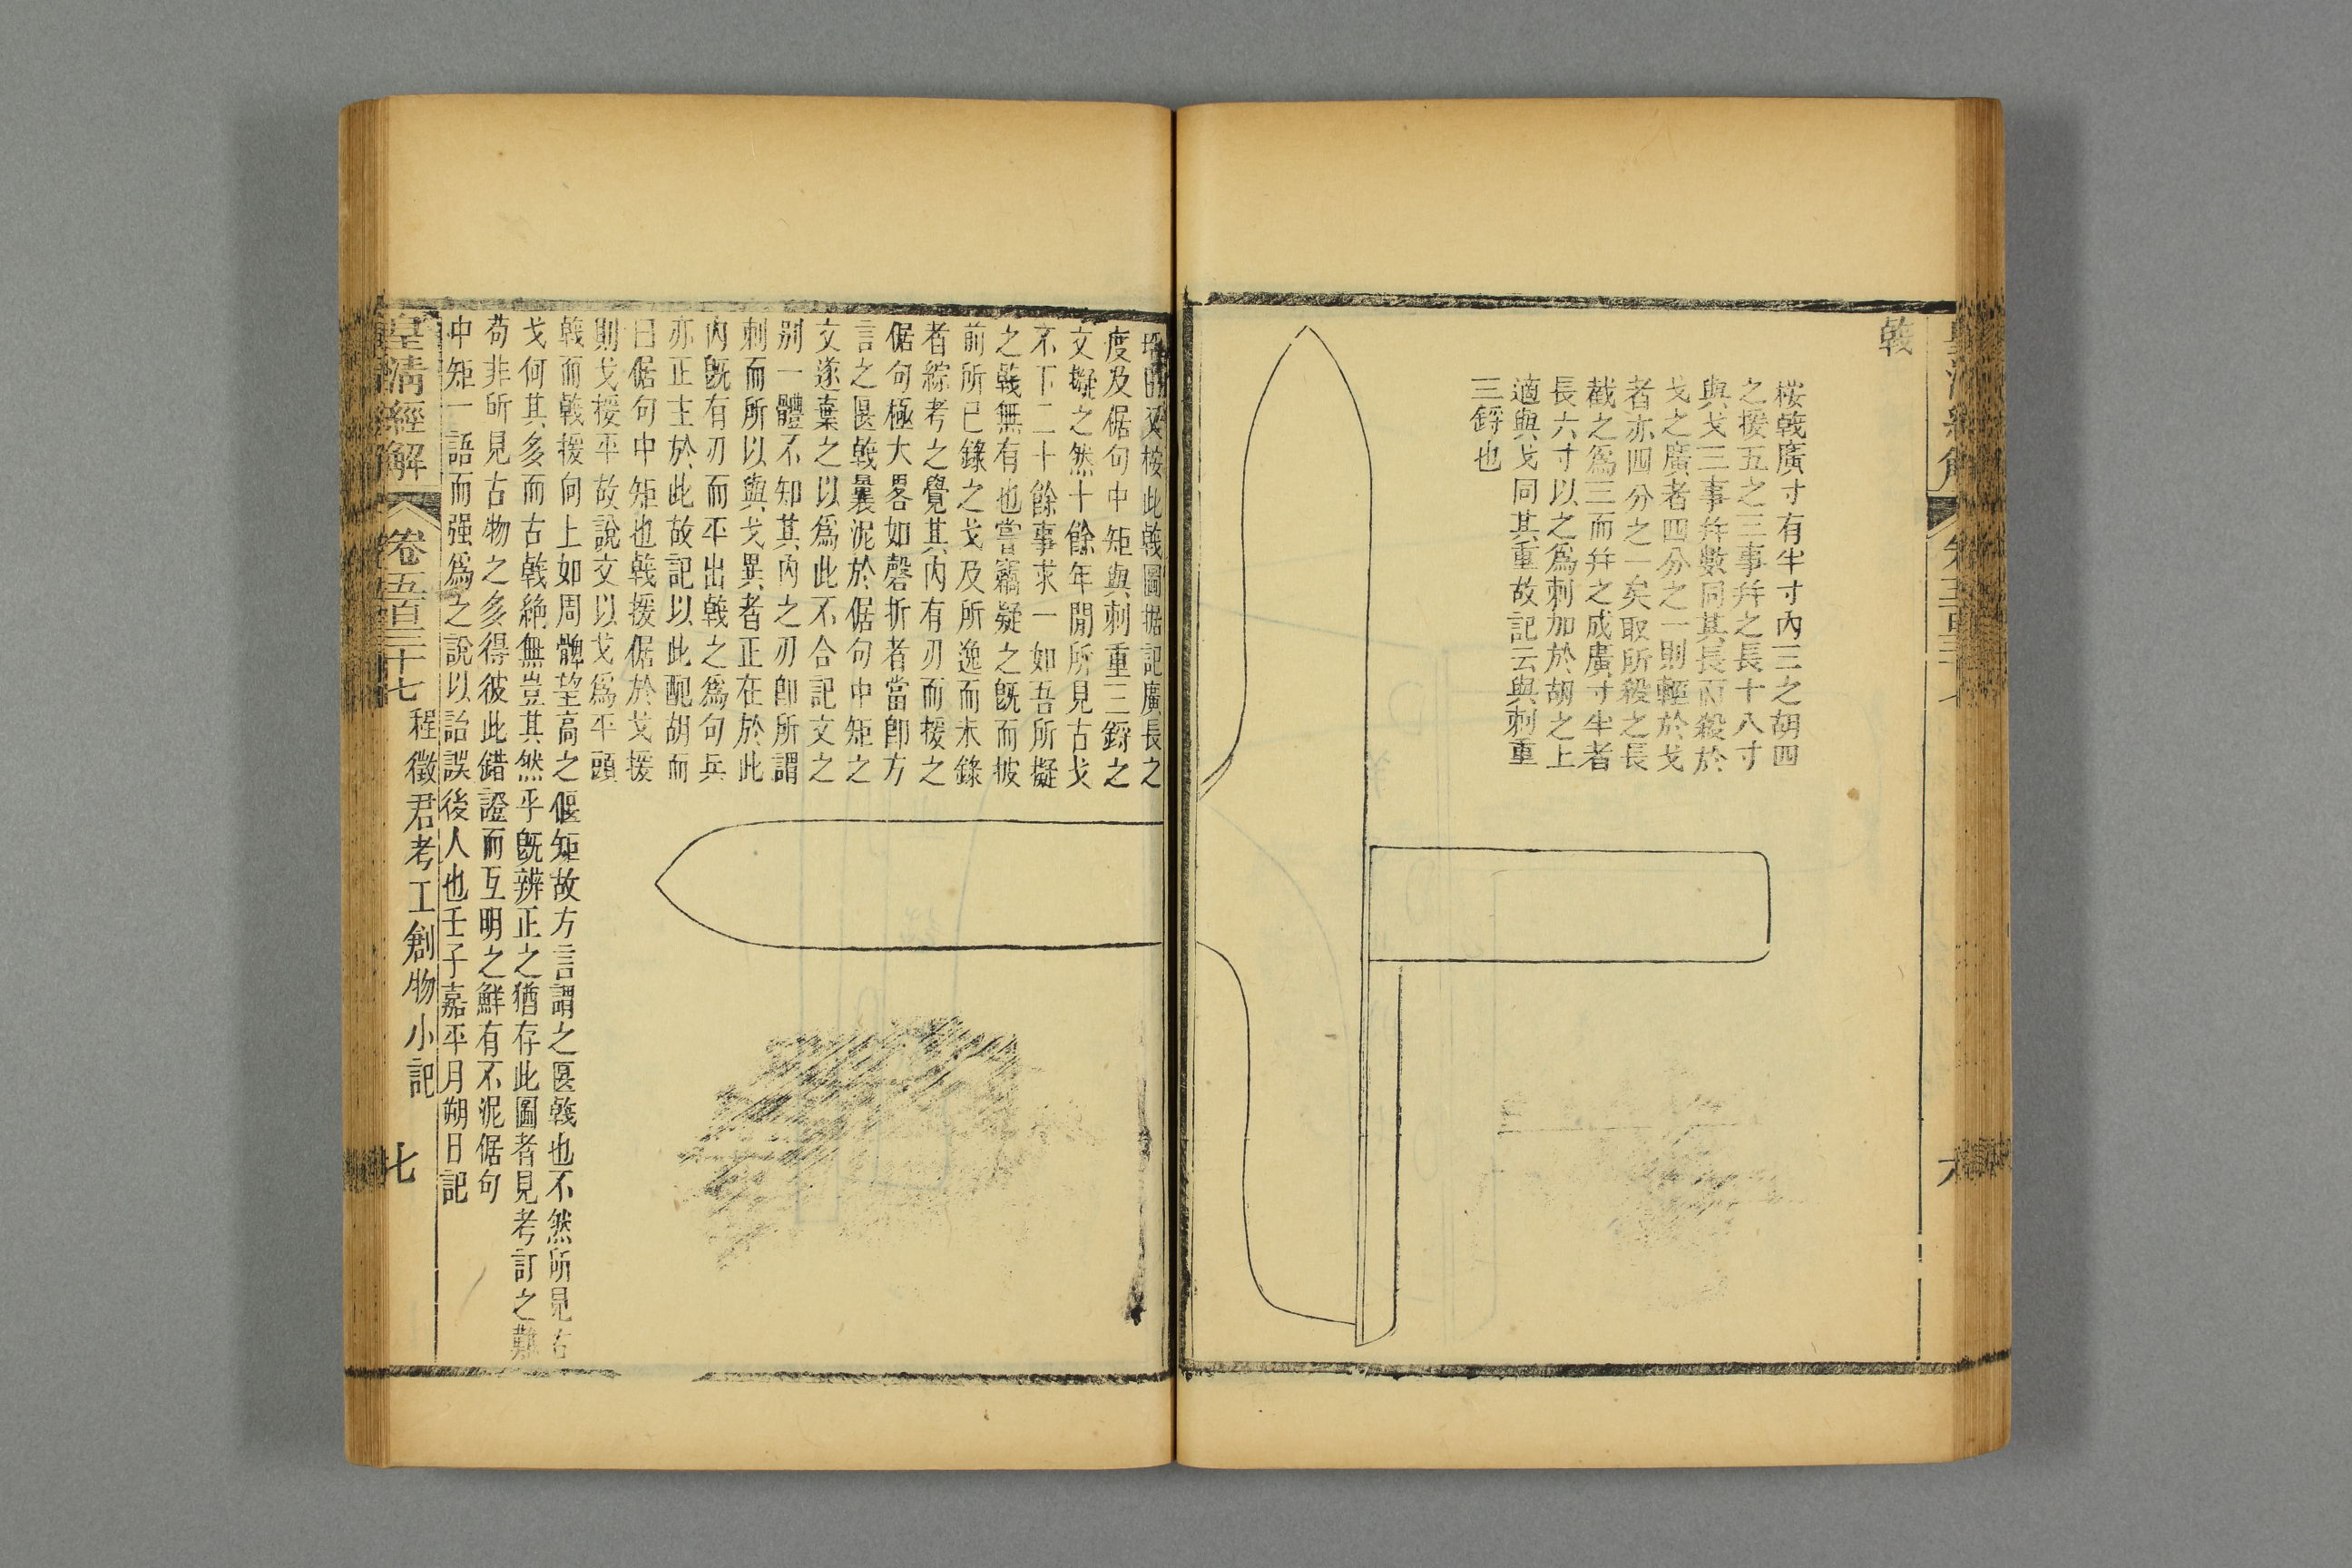 戟
桉戟廣寸有半寸內三之胡四
之援五之三事幷之長十八寸
與戈三事幷數同其長而殺於
戈之廣者四分之一則輕於戈
者亦四分之一矣取所殺之長
截之爲三而幷之成廣寸半者
長六寸以之爲刺加於胡之上
適與戈同其重故記云與刺重
三鋝也
六
又桉此戟圖據記廣長之
度及倨句中矩與刺重三鋝之
文擬之然十餘年閒所見古戈
不下二十餘事求一如吾所擬
之戟無有也嘗竊疑之旣而披
前所已錄之戈及所逸而未錄
者綜考之覺其內有刃而援之
倨句極大畧如磬折者當卽方
言之匽戟曩泥於倨句中矩之
文遂棄之以爲此不合記文之
別一體不知其內之刃卽所謂
刺而所以與戈異者正在於此
內旣有刃而平出戟之爲句兵
亦正主於此故記以此配胡而
曰倨句中矩也戟援倨於戈援
則戈援平故說文以戈爲平頭
戟而戟援向上如周髀望高之偃矩故方言謂之匽戟也不然所見古
戈何其多而古戟絶無豈其然乎旣辨正之猶存此圖者見考訂之難
苟非所見古物之多得彼此錯證而互明之鮮有不泥倨句
中矩一語而强爲之說以詒誤後人也壬子嘉平月朔日記
皇淸經解 卷五百三十七 程徵君考工創物小記 七